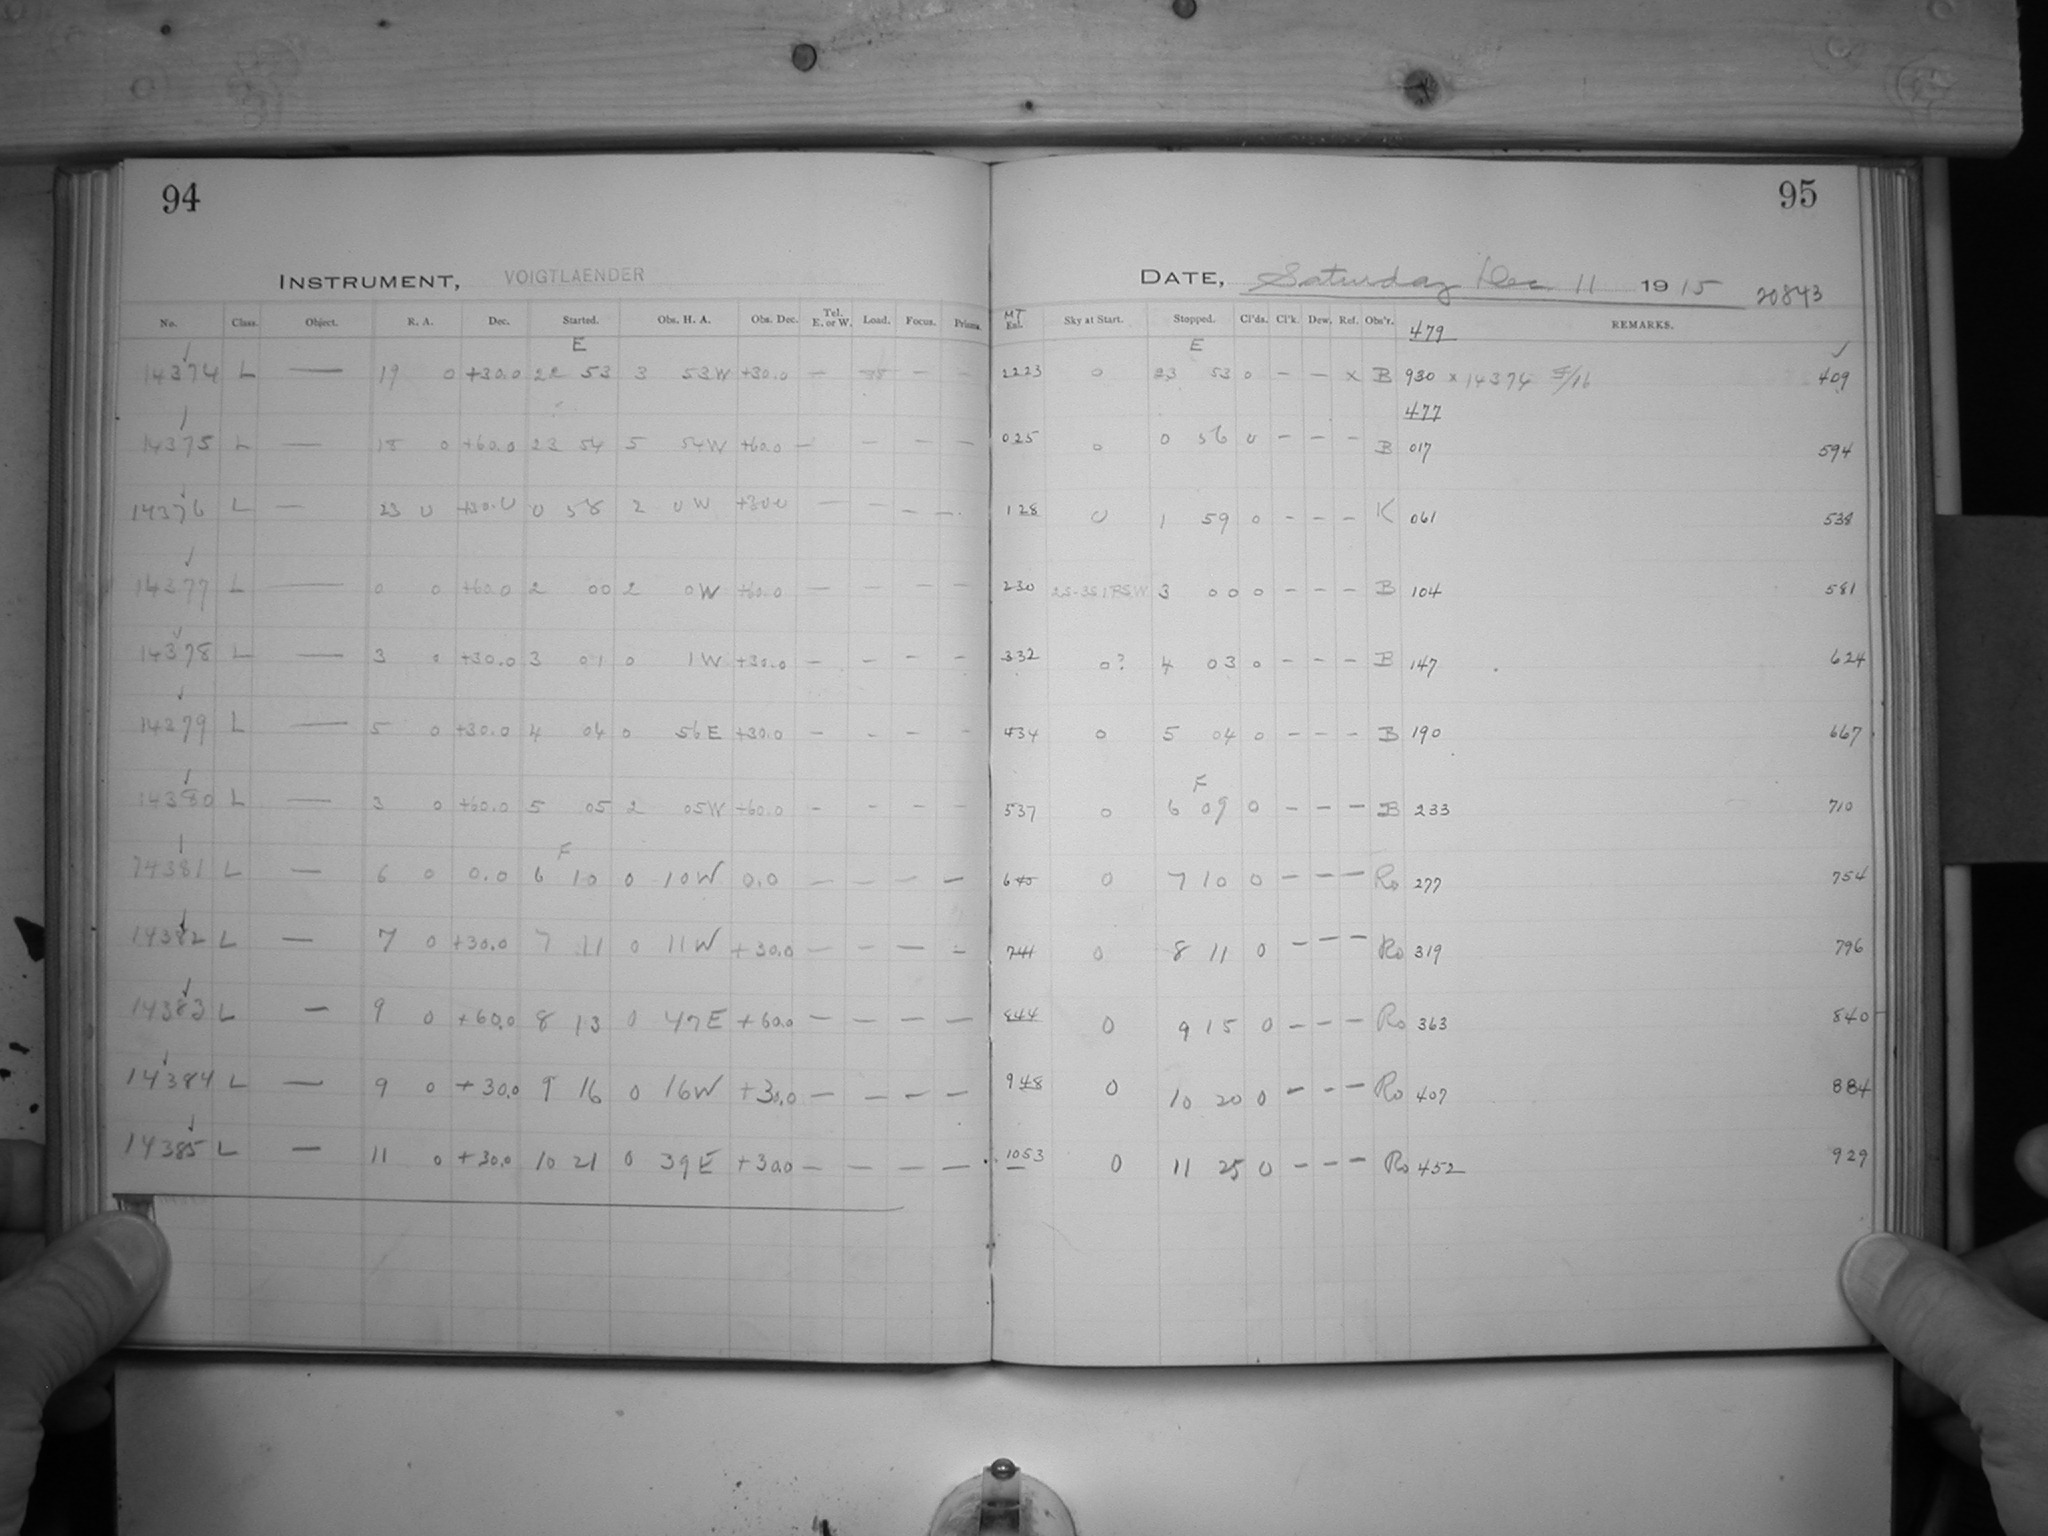 94
95
INSTRUMENT, VOIGTLAENDER
DATE, Saturday Dec 11 1915 20843
No. Class. Object. R. A. Dec. Started. Obs. H. A. Obs. Dec. Tel. E. or W. Load. Focus. Prisms. MT Ex. Sky at Start. Stopped. Cl'ds. Cl'k. Dew. Ref. Obs'r. REMARKS.
479
E E
14374 L — 19 0 +30.0 22 53 3 53W +30.0 — — — 2223 0 23 53 0 — — x B 930 x 14374 409
477
14375 L — 18 0 +60.0 23 54 5 54W +60.0 — — — — 025 0 0 56 0 — — — B 017 594
14376 L — 23 0 +30.0 0 58 2 0W +30.0 — — — — 128 0 1 59 0 — — — K 061 538
14377 L — 0 0 +60.0 2 00 2 0W +60.0 — — — — 230 3 00 0 — — — B 104 581
14378 L — 3 0 +30.0 3 01 0 1W +30.0 — — — — 332 0? 4 03 0 — — — B 147 624
14379 L — 5 0 +30.0 4 04 0 56E +30.0 — — — — 434 0 5 04 0 — — — B 190 667
F
14380 L — 3 0 +60.0 5 05 2 05W +60.0 — — — — 537 0 6 09 0 — — — B 233 710
F
14381 L — 6 0 0.0 6 10 0 10W 0.0 — — — — 640 0 7 10 0 — — — Ro 277 754
14382 L — 7 0 +30.0 7 11 0 11W +30.0 — — — — 741 0 8 11 0 — — — Ro 319 796
14383 L — 9 0 +60.0 8 13 0 47E +60.0 — — — — 844 0 9 15 0 — — — Ro 363 840
14384 L — 9 0 +30.0 9 16 0 16W +30.0 — — — — 948 0 10 20 0 — — — Ro 407 884
14385 L — 11 0 +30.0 10 21 0 39E +30.0 — — — — 1053 0 11 25 0 — — — Ro 452 929